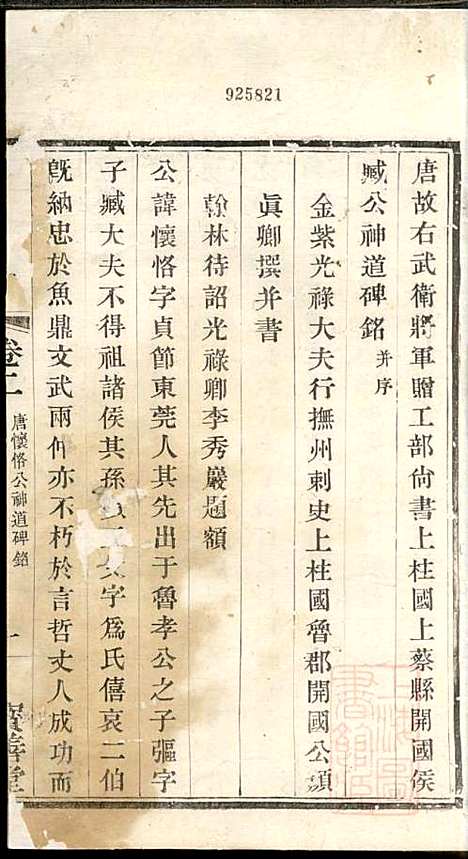 925821
唐故右武衛將軍贈工部尙書上柱國上蔡縣開國侯
臧公神道碑銘 并序
金紫光祿大夫行撫州刺史上柱國魯郡開國公顏
眞卿撰并書
翰林待詔光祿卿李秀巖題額
公諱懷恪字貞節東莞人其先出于魯孝公之子彄字
子臧大夫不得祖諸侯其孫字爲氏僖哀二伯
旣納忠於魚鼎文武兩仲亦不朽於言哲丈人成功而
卷二 唐懷恪公神道碑銘 一